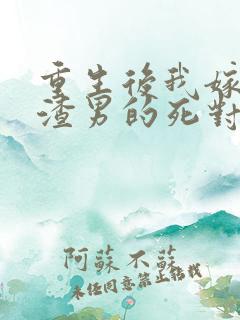 重生後我嫁
渣男的死對
阿蘇不蘇
未任同意禁止轉載